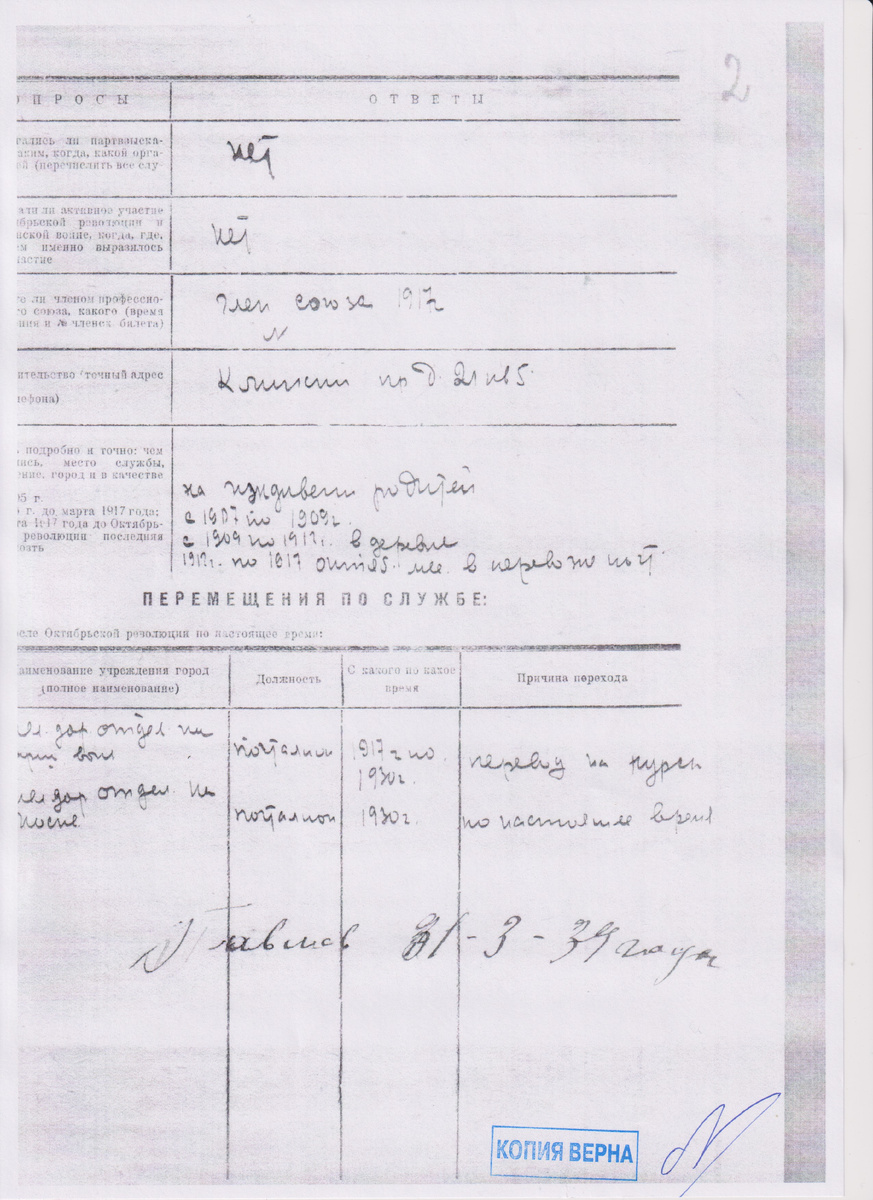 2
ОПРОСЫ ОТВЕТЫ
гались ли партвзыска-
аким, когда, какой орга-
ей (перечислить все слу-
нет
али ли активное участие
ябрьской революции и
нской войне, когда, где,
ем именно выразилось
частие
нет
те ли членом профессио-
го союза, какого (время
ения и № членск. билета)
член союза 1917г
N
ительство (точный адрес
лефона)
Клинский пр д. 21 кв 5
ь подробно и точно: чем
лись, место службы,
ение, город и в качестве
05 г.
г. до марта 1917 года;
та 1917 года до Октябрь-
революции последняя
на иждивени родитей
с 1907 по 1909г.
с 1909 по 1912г. в деревне
1912г. по 1917 октяб. мес. в
ПЕРЕМЕЩЕНИЯ ПО СЛУЖБЕ:
осле Октябрьской революции по настоящее время:
аименование учреждения город
(полное наименование)
Должность
С какого по какое
время
Причина перехода
отдел
почталион
1917 г по
1930г.
перевод на курсы
отдел
почталион
1930г.
по настояшее время
31-3-39 года
КОПИЯ ВЕРНА